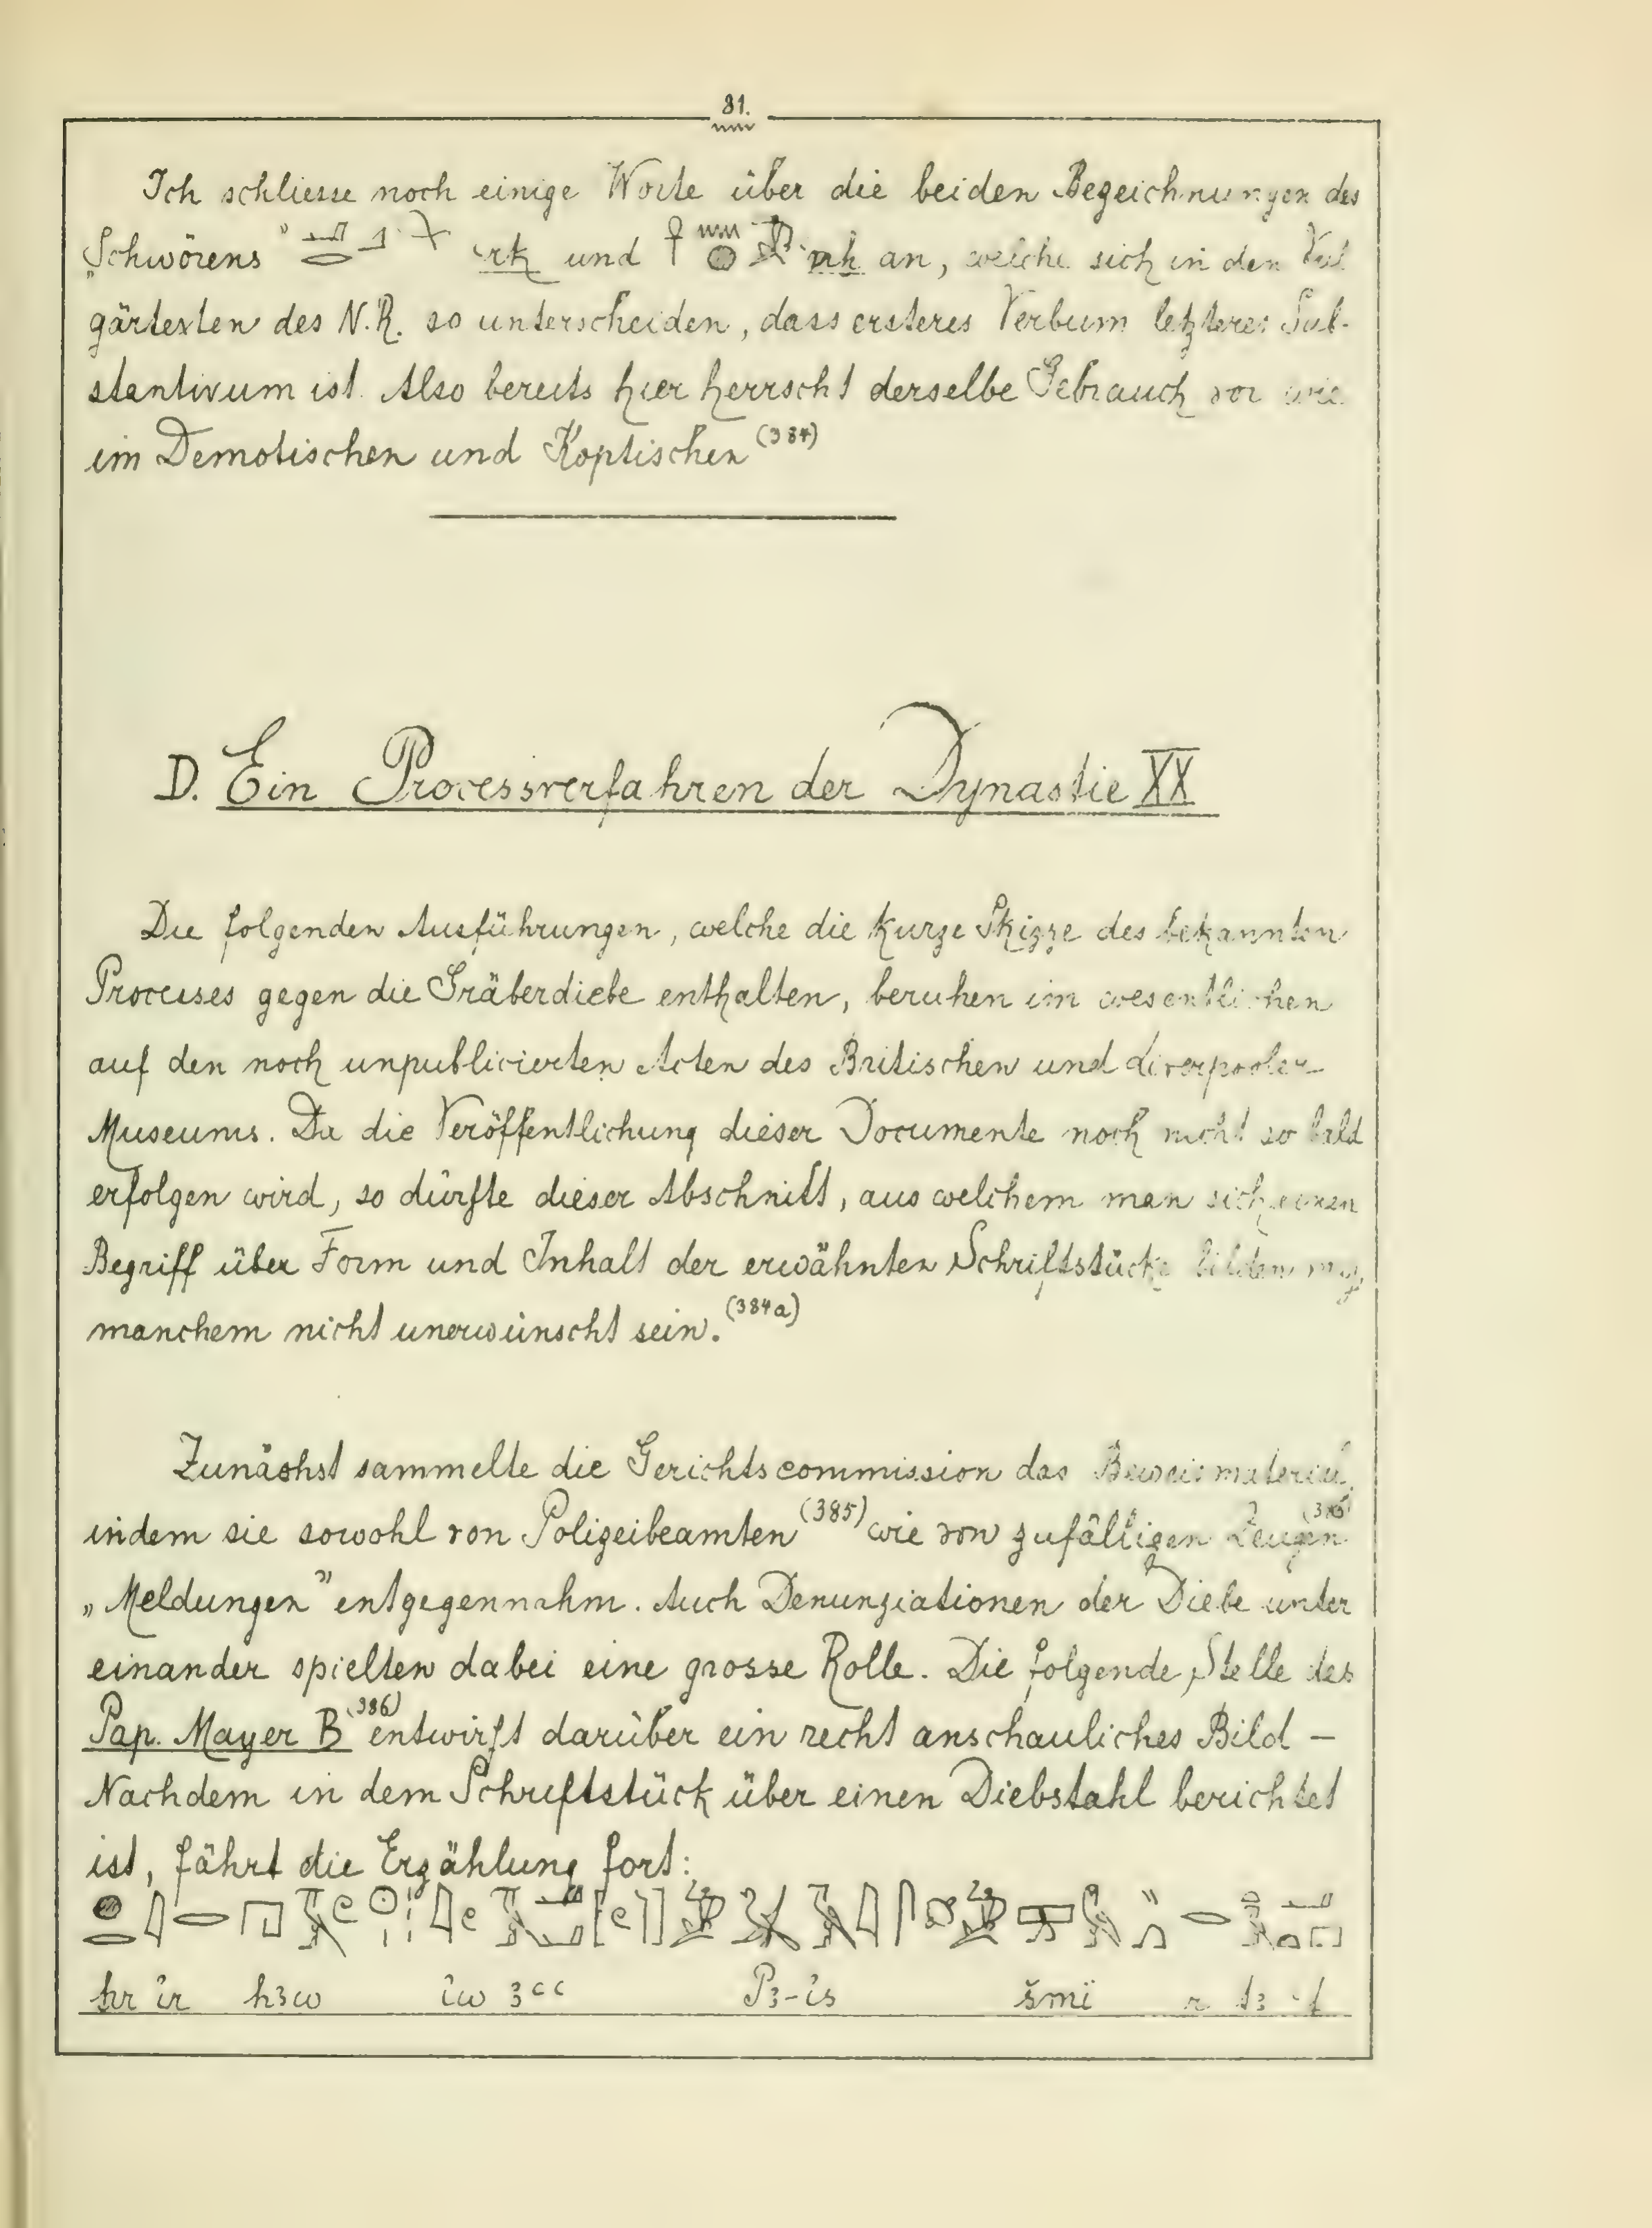 81.
Ich schliesse noch einige Worte über die beiden Bezeichnungen des
„Schwörens" ꜥrḳ und ꜥnḫ an, welche sich in den Vul
gärtexten des N.R. so unterscheiden, dass ersteres Verbum letzteres Sub-
stantivum ist. Also bereits hier herrscht derselbe Gebrauch vor wie
im Demotischen und Koptischen (384)
D. Ein Processverfahren der Dynastie XX
Die folgenden Ausführungen, welche die kurze Skizze des bekannten
Processes gegen die Gräberdiebe enthalten, beruhen im wesentlichen
auf den noch unpublicierten Acten des Britischen und Liverpooler
Museums. Da die Veröffentlichung dieser Documente noch nicht so bald
erfolgen wird, so dürfte dieser Abschnitt, aus welchem man sich einen
Begriff über Form und Inhalt der erwähnten Schriftstücke bilden mag,
manchem nicht unerwünscht sein. (384a)
Zunächst sammelte die Gerichtscommission das Beweismaterial,
indem sie sowohl von Polizeibeamten (385) wie von zufälligen Zeugen
„Meldungen" entgegennahm. Auch Denunziationen der Diebe unter
einander spielten dabei eine grosse Rolle. Die folgende Stelle des
Pap. Mayer B (386) entwirft darüber ein recht anschauliches Bild –
Nachdem in dem Schriftstück über einen Diebstahl berichtet
ist, fährt die Erzählung fort:
ḫr ir h3w iw 3ꜥꜥ P3-is šmï r t3